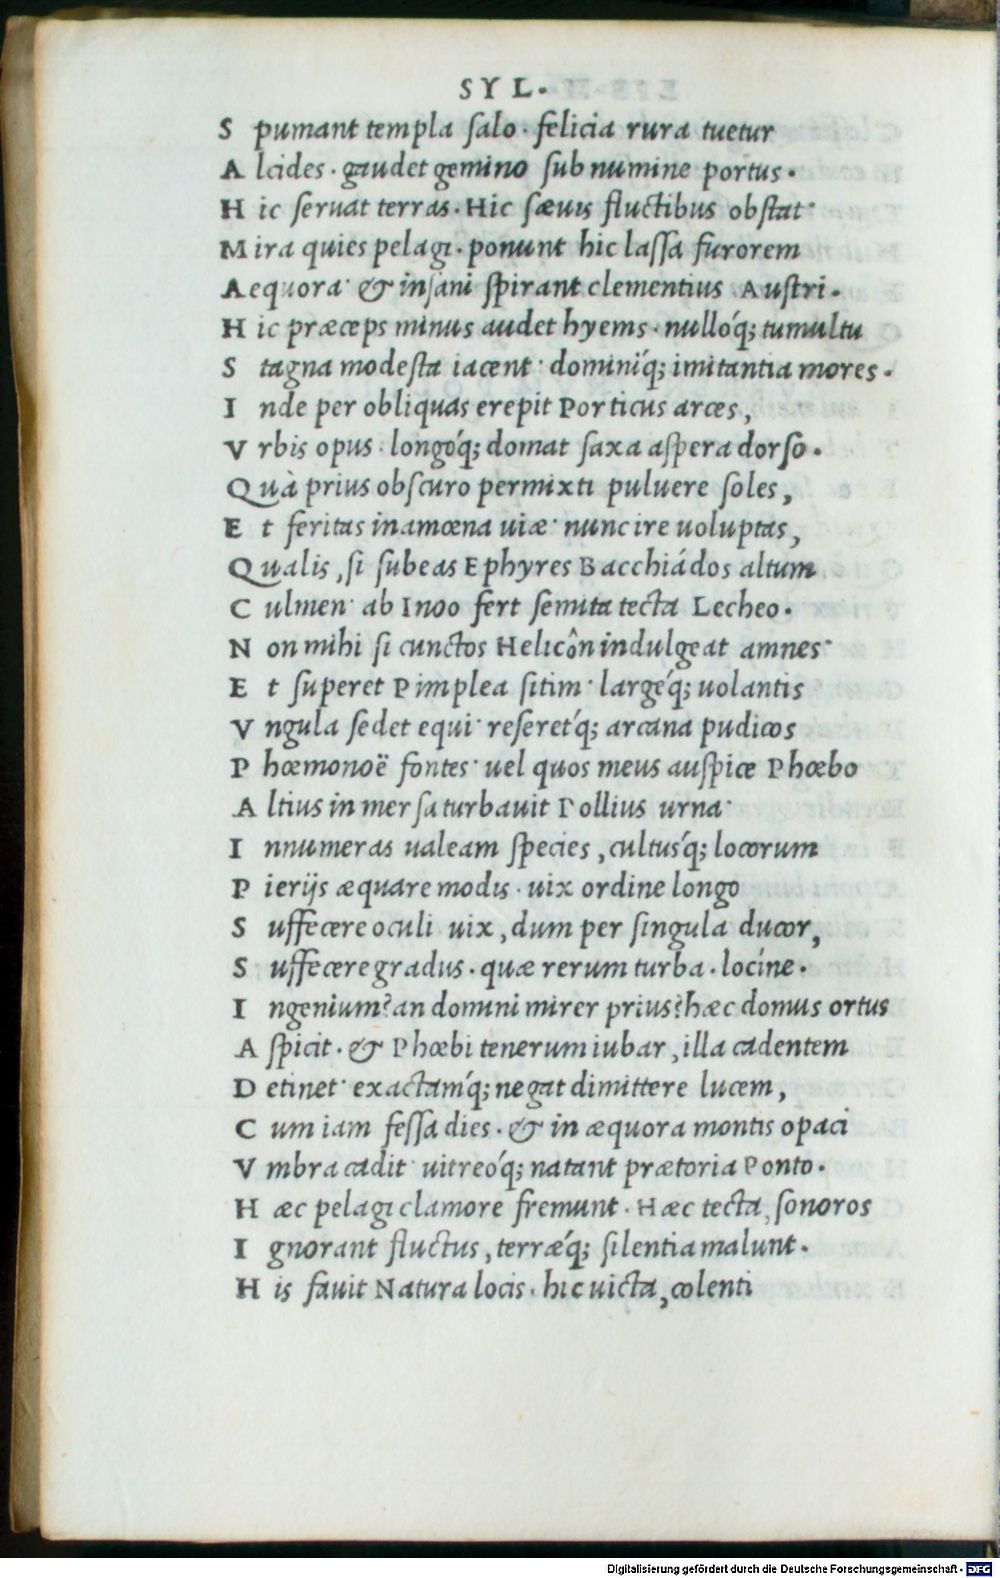 SYL.
Spumant templa salo. felicia rura tuetur
Alcides. gaudet gemino sub numine portus.
Hic seruat terras. Hic sæuis fluctibus obstat·
Mira quies pelagi. ponunt hic lassa furorem
Aequora· & insani spirant clementius Austri.
Hic præceps minus audet hyems. nulló'q; tumultu
Stagna modesta iacent· dominí'q; imitantia mores.
Inde per obliquas erepit Porticus arces,
Vrbis opus. longó'q; domat saxa aspera dorso.
Quà prius obscuro permixti puluere soles,
Et feritas inamœna uiæ· nunc ire uoluptas,
Qualis, si subeas Ephyres Bacchiádos altum
Culmen· ab Inoo fert semita tecta Lecheo.
Non mihi si cunctos Helicôn indulgeat amnes·
Et superet Pimplea sitim· largé'q; uolantis
Vngula sedet equi· reseret'q; arcana pudicos
Phœmonoë fontes· uel quos meus auspice Phœbo
Altius in mersa turbauit Pollius urna·
Innumeras ualeam species, cultus'q; locorum
Pierijs æquare modis. uix ordine longo
Suffecere oculi uix, dum per singula ducor,
Suffecere gradus. quæ rerum turba. locíne.
Ingenium? an domini mirer prius? hæc domus ortus
Aspicit. & Phœbi tenerum iubar, illa cadentem
Detinet· exactam'q; negat dimittere lucem,
Cum iam fessa dies. & in æquora montis opaci
Vmbra cadit· uitreó'q; natant prætoria Ponto.
Hæc pelagi clamore fremunt. Hæc tecta, sonoros
Ignorant fluctus, terræ'q; silentia malunt.
His fauit Natura locis. hic uicta, colenti
Digitalisierung gefördert durch die Deutsche Forschungsgemeinschaft - DFG